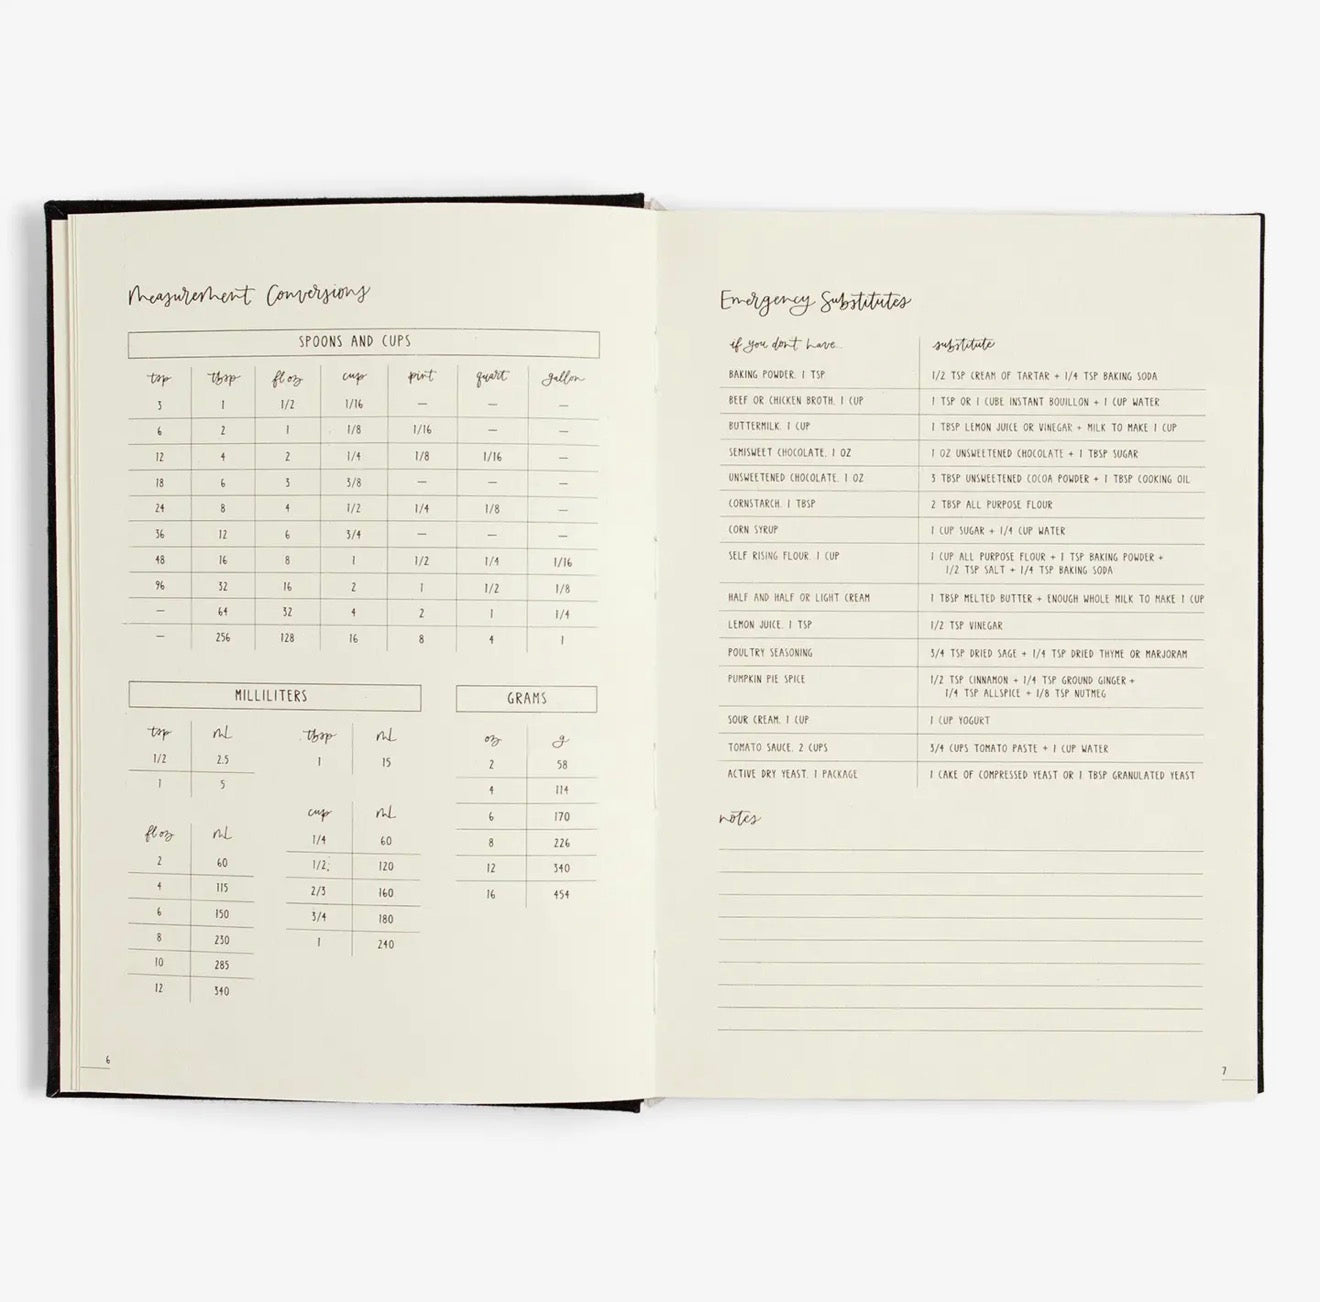 Measurement Conversions
SPOONS AND CUPS
tsp tbsp fl oz cup pint quart gallon
3 1 1/2 1/16 — — —
6 2 1 1/8 1/16 — —
12 4 2 1/4 1/8 1/16 —
18 6 3 3/8 — — —
24 8 4 1/2 1/4 1/8 —
36 12 6 3/4 — — —
48 16 8 1 1/2 1/4 1/16
96 32 16 2 1 1/2 1/8
— 64 32 4 2 1 1/4
— 256 128 16 8 4 1
MILLILITERS
tsp mL
1/2 2.5
1 5
fl oz mL
2 60
4 115
6 150
8 230
10 285
12 340
tbsp mL
1 15
cup mL
1/4 60
1/2 120
2/3 160
3/4 180
1 240
GRAMS
oz g
2 58
4 114
6 170
8 226
12 340
16 454
6
Emergency Substitutes
if you don't have... substitute
BAKING POWDER, 1 TSP 1/2 TSP CREAM OF TARTAR + 1/4 TSP BAKING SODA
BEEF OR CHICKEN BROTH, 1 CUP 1 TSP OR 1 CUBE INSTANT BOUILLON + 1 CUP WATER
BUTTERMILK, 1 CUP 1 TBSP LEMON JUICE OR VINEGAR + MILK TO MAKE 1 CUP
SEMISWEET CHOCOLATE, 1 OZ 1 OZ UNSWEETENED CHOCOLATE + 1 TBSP SUGAR
UNSWEETENED CHOCOLATE, 1 OZ 3 TBSP UNSWEETENED COCOA POWDER + 1 TBSP COOKING OIL
CORNSTARCH, 1 TBSP 2 TBSP ALL PURPOSE FLOUR
CORN SYRUP 1 CUP SUGAR + 1/4 CUP WATER
SELF RISING FLOUR, 1 CUP 1 CUP ALL PURPOSE FLOUR + 1 TSP BAKING POWDER +
1/2 TSP SALT + 1/4 TSP BAKING SODA
HALF AND HALF OR LIGHT CREAM 1 TBSP MELTED BUTTER + ENOUGH WHOLE MILK TO MAKE 1 CUP
LEMON JUICE, 1 TSP 1/2 TSP VINEGAR
POULTRY SEASONING 3/4 TSP DRIED SAGE + 1/4 TSP DRIED THYME OR MARJORAM
PUMPKIN PIE SPICE 1/2 TSP CINNAMON + 1/4 TSP GROUND GINGER +
1/4 TSP ALLSPICE + 1/8 TSP NUTMEG
SOUR CREAM, 1 CUP 1 CUP YOGURT
TOMATO SAUCE, 2 CUPS 3/4 CUPS TOMATO PASTE + 1 CUP WATER
ACTIVE DRY YEAST, 1 PACKAGE 1 CAKE OF COMPRESSED YEAST OR 1 TBSP GRANULATED YEAST
notes
7